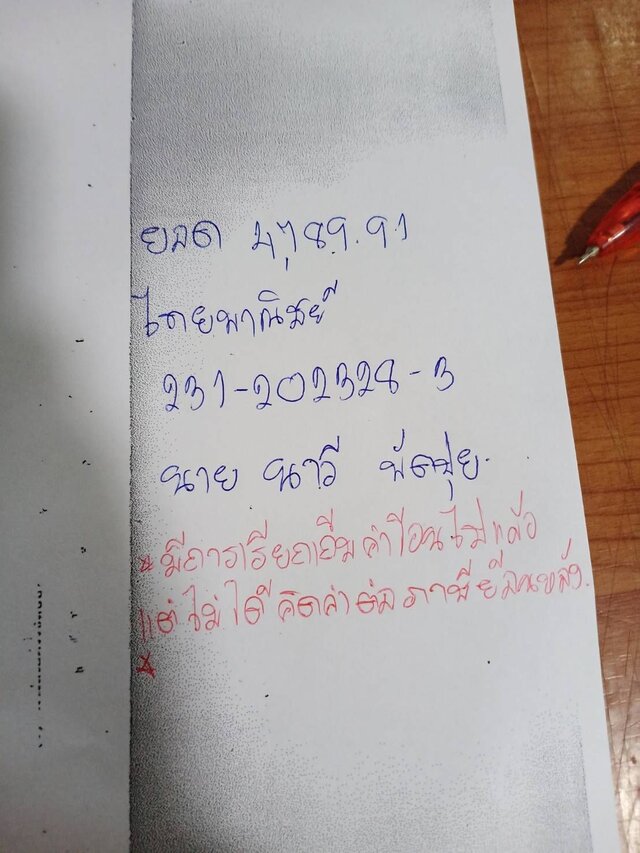 ยอด 4,789.91
ไทยพาณิชย์
231-202328-3
นาย นาวี
* มีการเรียกเก็บค่าโอนไปแล้ว
แต่ไม่ได้คิดค่าต่อภาษีย้อนหลัง.
*